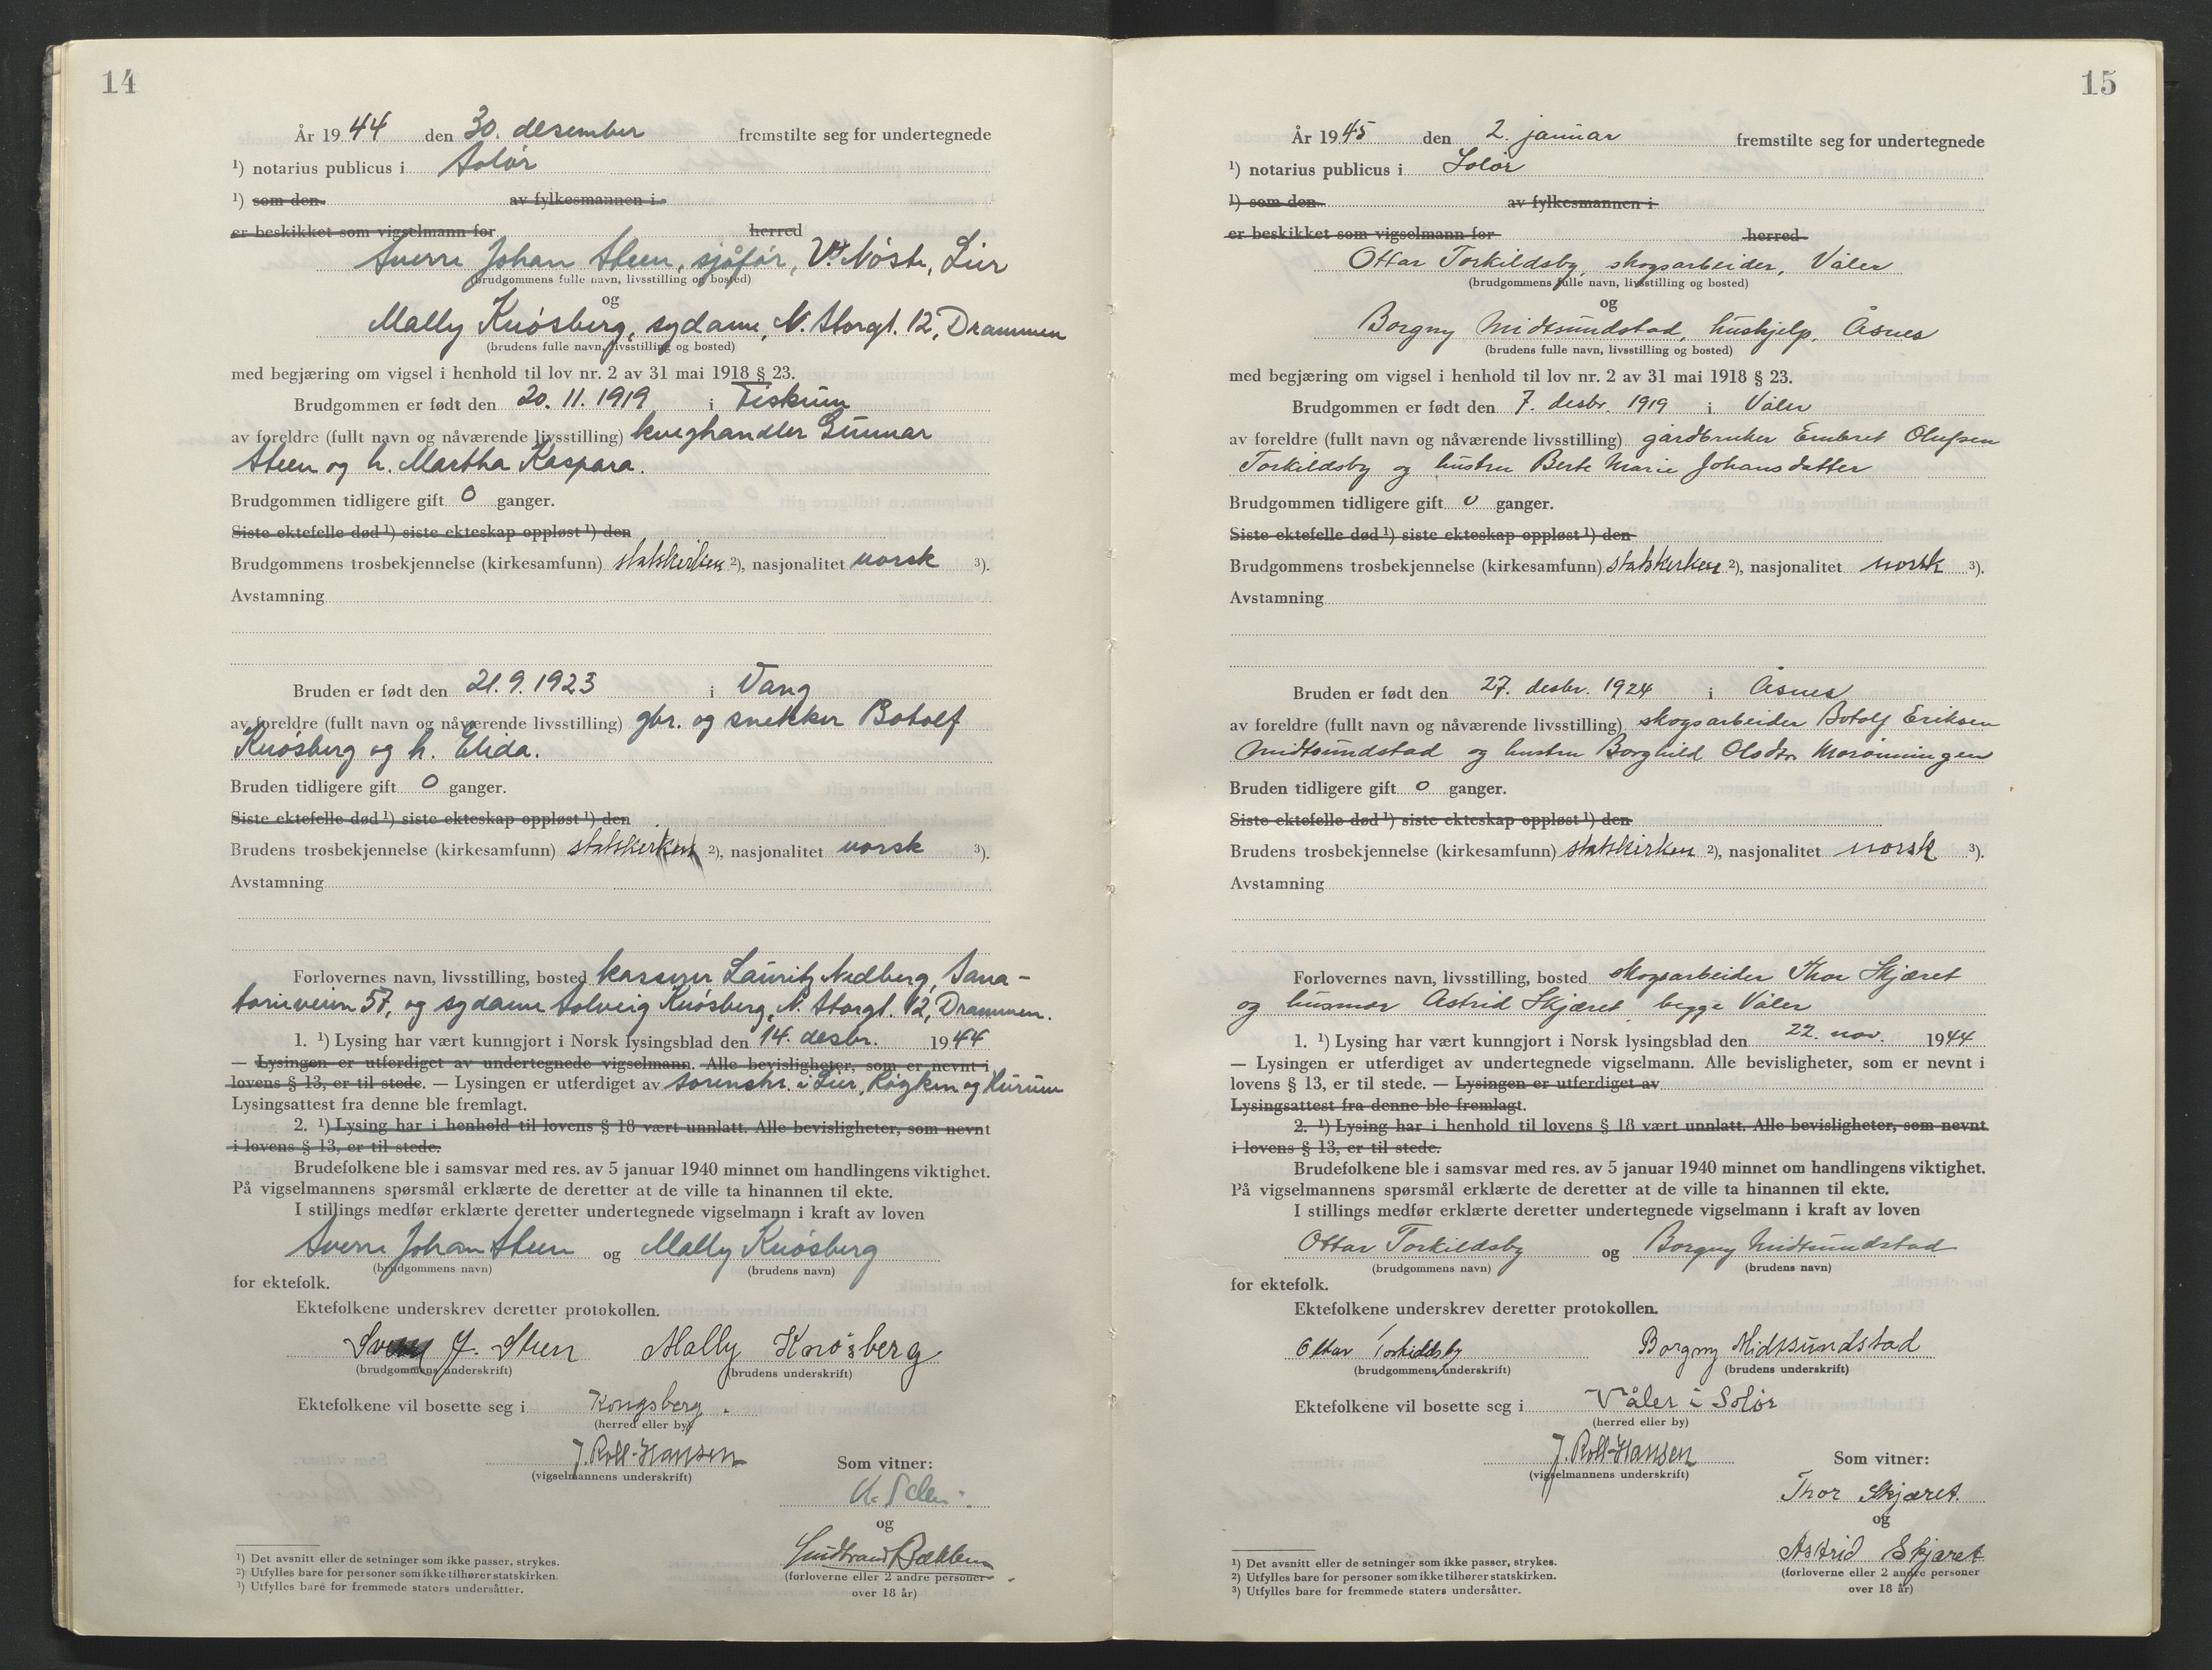 14
År 1944 den 30. desember fremstilte seg for undertegnede
¹) notarius publicus i Solør
¹) som den av fylkesmannen i
er beskikket som vigselmann for herred
Sverre Johan Steen, sjåfør, V. Nøste, Lier
(brudgommens fulle navn, livsstilling og bosted)
og
Mally Knösberg, sydame, N. Storgt. 12, Drammen
(brudens fulle navn, livsstilling og bosted)
med begjæring om vigsel i henhold til lov nr. 2 av 31 mai 1918 § 23.
Brudgommen er født den 20. 11. 1919 i Fiskum
av foreldre (fullt navn og nåværende livsstilling) kveghandler Gunnar
Steen og h. Martha Kaspara.
Brudgommen tidligere gift 0 ganger.
Siste ektefelle død ¹) siste ekteskap oppløst ¹) den
Brudgommens trosbekjennelse (kirkesamfunn) statskirken ²), nasjonalitet norsk ³).
Avstamning
Bruden er født den 21. 9. 1923 i Vang
av foreldre (fullt navn og nåværende livsstilling) gbr. og snekker Botolf
Knösberg og h. Elida.
Bruden tidligere gift 0 ganger.
Siste ektefelle død ¹) siste ekteskap oppløst ¹) den
Brudens trosbekjennelse (kirkesamfunn) statskirken ²), nasjonalitet norsk ³).
Avstamning
Forlovernes navn, livsstilling, bosted kasserer Lauritz Nedberg, Sana-
torieveien 57, og sydame Solveig Knösberg, N. Storgt. 12, Drammen.
1. ¹) Lysing har vært kunngjort i Norsk lysingsblad den 14. desbr. 1944
— Lysingen er utferdiget av undertegnede vigselmann. Alle bevisligheter, som er nevnt i
lovens § 13, er til stede. — Lysingen er utferdiget av sorenskr. i Lier, Røyken og Hurum
Lysingsattest fra denne ble fremlagt.
2. ¹) Lysing har i henhold til lovens § 18 vært unnlatt. Alle bevisligheter, som nevnt
i lovens § 13, er til stede.
Brudefolkene ble i samsvar med res. av 5 januar 1940 minnet om handlingens viktighet.
På vigselmannens spørsmål erklærte de deretter at de ville ta hinannen til ekte.
I stillings medfør erklærte deretter undertegnede vigselmann i kraft av loven
Sverre Johan Steen og Mally Knösberg
(brudgommens navn) (brudens navn)
for ektefolk.
Ektefolkene underskrev deretter protokollen.
J. Steen Mally Knösberg
(brudgommens underskrift) (brudens underskrift)
Ektefolkene vil bosette seg i Kongsberg.
(herred eller by)
J. Roll-Hansen
(vigselmannens underskrift)
Som vitner:
og
Gudbrand Bækken
(forloverne eller 2 andre personer
over 18 år)
¹) Det avsnitt eller de setninger som ikke passer, strykes.
²) Utfylles bare for personer som ikke tilhører statskirken.
³) Utfylles bare for fremmede staters undersåtter.
15
År 1945 den 2. januar fremstilte seg for undertegnede
¹) notarius publicus i Solør
¹) som den av fylkesmannen i
er beskikket som vigselmann for herred
Ottar Torkildsby, skogsarbeider, Våler
(brudgommens fulle navn, livsstilling og bosted)
og
Borgny Midtsundstad, hushjelp, Åsnes
(brudens fulle navn, livsstilling og bosted)
med begjæring om vigsel i henhold til lov nr. 2 av 31 mai 1918 § 23.
Brudgommen er født den 7. desbr. 1919 i Våler
av foreldre (fullt navn og nåværende livsstilling) gårdbruker Embret Olufsen
Torkildsby og hustru Berte Marie Johansdatter
Brudgommen tidligere gift 0 ganger.
Siste ektefelle død ¹) siste ekteskap oppløst ¹) den
Brudgommens trosbekjennelse (kirkesamfunn) statskirken ²), nasjonalitet norsk ³).
Avstamning
Bruden er født den 27. desbr. 1924 i Åsnes
av foreldre (fullt navn og nåværende livsstilling) skogsarbeider Botolf Eriksen
Midtsundstad og hustru Borghild Olsdtr. Morønningen
Bruden tidligere gift 0 ganger.
Siste ektefelle død ¹) siste ekteskap oppløst ¹) den
Brudens trosbekjennelse (kirkesamfunn) statskirken ²), nasjonalitet norsk ³).
Avstamning
Forlovernes navn, livsstilling, bosted skogsarbeider Thor Skjæret
og husmor Astrid Skjæret, begge Våler
1. ¹) Lysing har vært kunngjort i Norsk lysingsblad den 22. nov. 1944
— Lysingen er utferdiget av undertegnede vigselmann. Alle bevisligheter, som er nevnt i
lovens § 13, er til stede. — Lysingen er utferdiget av
Lysingsattest fra denne ble fremlagt.
2. ¹) Lysing har i henhold til lovens § 18 vært unnlatt. Alle bevisligheter, som nevnt
i lovens § 13, er til stede.
Brudefolkene ble i samsvar med res. av 5 januar 1940 minnet om handlingens viktighet.
På vigselmannens spørsmål erklærte de deretter at de ville ta hinannen til ekte.
I stillings medfør erklærte deretter undertegnede vigselmann i kraft av loven
Ottar Torkildsby og Borgny Midtsundstad
(brudgommens navn) (brudens navn)
for ektefolk.
Ektefolkene underskrev deretter protokollen.
Ottar Torkildsby Borgny Midtsundstad
(brudgommens underskrift) (brudens underskrift)
Ektefolkene vil bosette seg i Våler i Solør
(herred eller by)
J. Roll-Hansen
(vigselmannens underskrift)
Som vitner:
Thor Skjæret.
og
Astrid Skjæret
(forloverne eller 2 andre personer
over 18 år)
¹) Det avsnitt eller de setninger som ikke passer, strykes.
²) Utfylles bare for personer som ikke tilhører statskirken.
³) Utfylles bare for fremmede staters undersåtter.